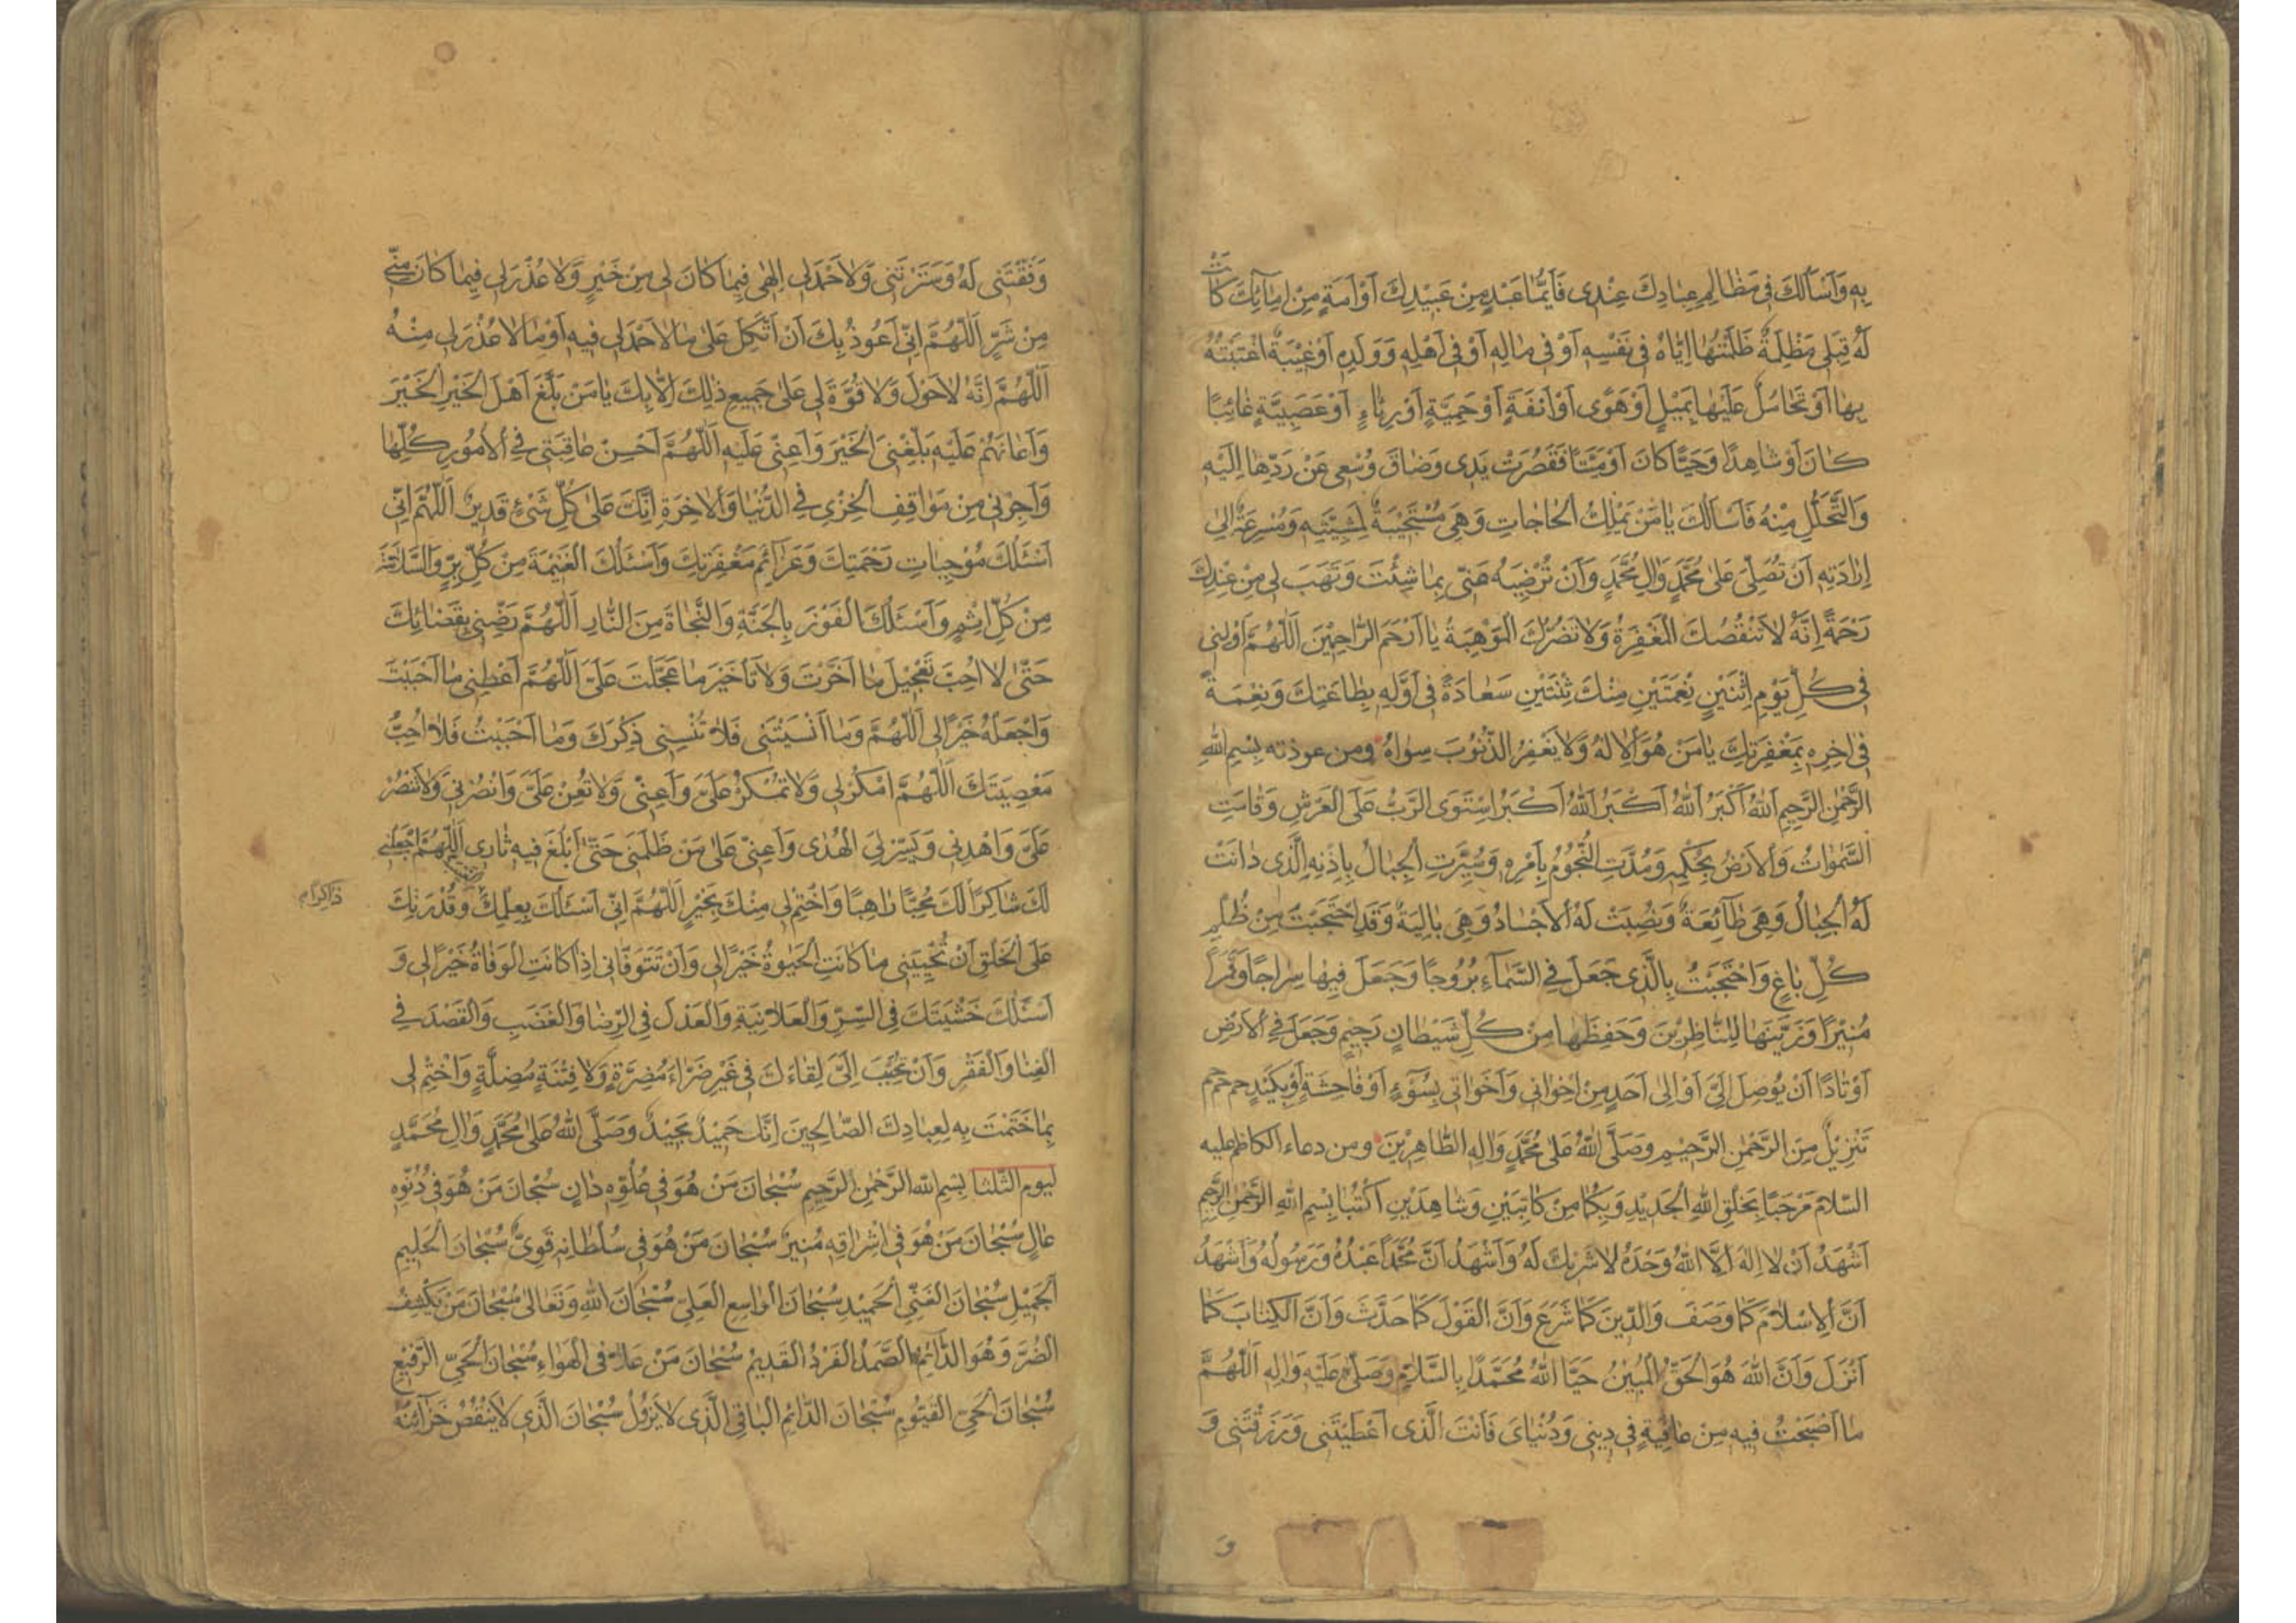 بِهِ وَاَسْاَلُكَ فِى مَظٰالِمِ عِبٰادِكَ عِنْدِى فَاَيُّمٰا عَبْدٍ مِنْ عَبِيْدِكَ اَوْ اَمَةٍ مِنْ اِمٰآئِكَ كٰانَتْ
لَهُ قِبَلِى مَظْلِمَةٌ ظَلَمْتُهٰا اِيّٰاهُ فِى نَفْسِهِ اَوْ فِى مٰالِهِ اَوْ فِى اَهْلِهِ وَوَلَدِهِ اَوْ غِيْبَةٌ اغْتَبْتُهُ
بِهٰا اَوْ تَحٰامُلٌ عَلَيْهٰا بِمَيْلٍ اَوْ هَوًى اَوْ اَنَفَةٍ اَوْ حَمِيَّةٍ اَوْ رِيٰاءٍ اَوْ عَصَبِيَّةٍ غٰائِبًا
كٰانَ اَوْ شٰاهِدًا وَحَيًّا كٰانَ اَوْ مَيِّتًا فَقَصُرَتْ يَدِى وَضٰاقَ وُسْعِى عَنْ رَدِّهٰا اِلَيْهِ
وَالتَّحَلُّلِ مِنْهُ فَاَسْاَلُكَ يٰا مَنْ يَمْلِكُ الْحٰاجٰاتِ وَهِىَ مُسْتَجِيْبَةٌ لِمَشِيَّتِهِ وَمُسْرِعَةٌ اِلىٰ
اِرٰادَتِهِ اَنْ تُصَلِّىَ عَلىٰ مُحَمَّدٍ وَاٰلِ مُحَمَّدٍ وَاَنْ تُرْضِيَهُ عَنّى بِمٰا شِئْتَ وَتَهَبَ لِى مِنْ عِنْدِكَ
رَحْمَةً اِنَّهُ لاٰ تَنْقُصُكَ الْمَغْفِرَةُ وَلاٰ تَضُرُّكَ الْمَوْهِبَةُ يٰا اَرْحَمَ الرّٰاحِمِيْنَ اَللّٰهُمَّ اَوْلِنِى
فِى كُلِّ يَوْمِ اِثْنَيْنِ نِعْمَتَيْنِ مِنْكَ ثِنْتَيْنِ سَعٰادَةً فِى اَوَّلِهِ بِطٰاعَتِكَ وَنِعْمَةً
فِى اٰخِرِهِ بِمَغْفِرَتِكَ يٰا مَنْ هُوَ الْاِلٰهُ وَلاٰ يَغْفِرُ الذُّنُوْبَ سِوٰاهُ ومن عوذته بِسْمِ اللهِ
الرَّحْمٰنِ الرَّحِيمِ اَللهُ اَكْبَرُ اَللهُ اَكْبَرُ اَللهُ اَكْبَرُ اسْتَوَى الرَّبُّ عَلَى الْعَرْشِ وَقٰامَتِ
السَّمٰوٰاتُ وَالْاَرْضُ بِحُكْمِهِ وَمُدَّتِ النُّجُوْمُ بِاَمْرِهِ وَسُيِّرَتِ الْجِبٰالُ بِاِذْنِهِ الَّذِى دٰانَتْ
لَهُ الْجِبٰالُ وَهِىَ طٰآئِعَةٌ وَنُصِبَتْ لَهُ الْاَجْسٰادُ وَهِىَ بٰالِيَةٌ وَقَدِ احْتَجَبْتُ مِنْ ظُلْمِ
كُلِّ بٰاغٍ وَاحْتَجَبْتُ بِالَّذِى جَعَلَ فِى السَّمٰآءِ بُرُوْجًا وَجَعَلَ فِيهٰا سِرٰاجًا وَقَمَرًا
مُنِيْرًا وَزَيَّنَهٰا لِلنّٰاظِرِيْنَ وَحَفِظَهٰا مِنْ كُلِّ شَيْطٰانٍ رَجِيمٍ وَجَعَلَ فِى الْاَرْضِ
اَوْتٰادًا اَنْ يُوصِلَ اِلَىَّ اَوْ اِلىٰ اَحَدٍ مِنْ اِخْوٰانِى وَاَخَوٰاتِى بِسُوْءٍ اَوْ فٰاحِشَةٍ اَوْ بِكَيْدٍ حم حم حم
تَنْزِيْلٌ مِنَ الرَّحْمٰنِ الرَّحِيْمِ وَصَلَّى اللهُ عَلىٰ مُحَمَّدٍ وَاٰلِهِ الطّٰاهِرِيْنَ ومن دعاء الكاظم عليه
السّلام مَرْحَبًا بِخَلْقِ اللهِ الْجَدِيْدِ وَبِكُمٰا مِنْ كٰاتِبَيْنِ وَشٰاهِدَيْنِ اُكْتُبٰا بِسْمِ اللهِ الرَّحْمٰنِ الرَّحِيمِ
اَشْهَدُ اَنْ لاٰ اِلٰهَ اِلاَّ اللهُ وَحْدَهُ لاٰ شَرِيْكَ لَهُ وَاَشْهَدُ اَنَّ مُحَمَّدًا عَبْدُهُ وَرَسُولُهُ وَاَشْهَدُ
اَنَّ الْاِسْلاٰمَ كَمٰا وَصَفَ وَالدّيْنَ كَمٰا شَرَعَ وَاَنَّ الْقَوْلَ كَمٰا حَدَّثَ وَاَنَّ الْكِتٰابَ كَمٰا
اَنْزَلَ وَاَنَّ اللهَ هُوَ الْحَقُّ الْمُبِيْنُ حَيَّا اللهُ مُحَمَّدًا بِالسَّلاٰمِ وَصَلّىٰ عَلَيْهِ وَاٰلِهِ اَللّٰهُمَّ
مٰا اَصْبَحْتُ فِيهِ مِنْ عٰافِيَةٍ فِى دِيِنِى وَدُنْيٰاىَ فَاَنْتَ الَّذِى اَعْطَيْتَنِى وَرَزَقْتَنِى وَ
و
وَفَّقْتَنِى لَهُ وَسَتَرْتَنِى وَلاٰ حَمْدَ لِى اِلٰهِى فِيمٰا كٰانَ لِى مِنْ خَيْرٍ وَلاٰ عُذْرَ لِى فِيمٰا كٰانَ مِنّى
مِنْ شَرٍّ اَللّٰهُمَّ اِنّى اَعُوذُ بِكَ اَنْ اَتَّكِلَ عَلىٰ مٰا لاٰ حَمْدَ لِى فِيهِ اَوْ مٰا لاٰ عُذْرَ لِى مِنْهُ
اَللّٰهُمَّ اِنَّهُ لاٰ حَوْلَ وَلاٰ قُوَّةَ لِى عَلىٰ جَمِيعِ ذٰلِكَ اِلاّٰ بِكَ يٰا مَنْ بَلَّغَ اَهْلَ الْخَيْرِ الْخَيْرَ
وَاَعٰانَهُمْ عَلَيْهِ بَلِّغْنِى الْخَيْرَ وَاَعِنّى عَلَيْهِ اَللّٰهُمَّ اَحْسِنْ عٰاقِبَتِى فِى الْاُمُورِ كُلِّهٰا
وَاَجِرْنِى مِنْ مَوٰاقِفِ الْخِزْىِ فِى الدُّنْيٰا وَالْاٰخِرَةِ اِنَّكَ عَلىٰ كُلِّ شَىْءٍ قَدِيْرٌ اَللّٰهُمَّ اِنّى
اَسْئَلُكَ مُوْجِبٰاتِ رَحْمَتِكَ وَعَزٰآئِمَ مَغْفِرَتِكَ وَاَسْئَلُكَ الْغَنِيْمَةَ مِنْ كُلِّ بِرٍّ وَالسَّلاٰمَةَ
مِنْ كُلِّ اِثْمٍ وَاَسْئَلُكَ الْفَوْزَ بِالْجَنَّةِ وَالنَّجٰاةَ مِنَ النّٰارِ اَللّٰهُمَّ رَضِّنِى بِقَضٰائِكَ
حَتّىٰ لاٰ اُحِبَّ تَعْجِيْلَ مٰا اَخَّرْتَ وَلاٰ تَأخِيْرَ مٰا عَجَّلْتَ عَلَىَّ اَللّٰهُمَّ اَعْطِنِى مٰا اَحْبَبْتُ
وَاجْعَلْهُ خَيْرًا لِى اَللّٰهُمَّ وَمٰا اَنْسَيْتَنِى فَلاٰ تُنْسِنِى ذِكْرَكَ وَمٰا اَحْبَبْتُ فَلاٰ اُحِبُّ
مَعْصِيَتَكَ اَللّٰهُمَّ امْكُرْ لِى وَلاٰ تَمْكُرْ عَلَىَّ وَاَعِنّى وَلاٰ تُعِنْ عَلَىَّ وَانْصُرْنِى وَلاٰ تَنْصُرْ
عَلَىَّ وَاهْدِنِى وَيَسِّرْ لِىَ الْهُدىٰ وَاَعِنّى عَلىٰ مَنْ ظَلَمَنِى حَتّىٰ اَبْلُغَ فِيهِ ثٰارِى اَللّٰهُمَّ اجْعَلْنِى
لَكَ شٰاكِرًا لَكَ مُحِبًّا رٰاهِبًا وَاخْتِمْ لِى مِنْكَ بِخَيْرٍ اَللّٰهُمَّ اِنّى اَسْئَلُكَ بِعِلْمِكَ وَقُدْرَتِكَ
ذاكرًا م
عَلَى الْخَلْقِ اَنْ تُحْيِيَنِى مٰا كٰانَتِ الْحَيٰوةُ خَيْرًا لِى وَاَنْ تَتَوَفّٰانِى اِذٰا كٰانَتِ الْوَفٰاةُ خَيْرًا لِى وَ
اَسْئَلُكَ خَشْيَتَكَ فِى السِّرِّ وَالْعَلاٰنِيَةِ وَالْعَدْلَ فِى الرِّضٰا وَالْغَضَبِ وَالْقَصْدَ فِى
الْغِنٰا وَالْفَقْرِ وَاَنْ تُحَبِّبَ اِلَىَّ لِقٰاءَكَ فِى غَيْرِ ضَرّٰاءَ مُضِرَّةٍ وَلاٰ فِتْنَةٍ مُضِلَّةٍ وَاخْتِمْ لِى
بِمٰا خَتَمْتَ بِهِ لِعِبٰادِكَ الصّٰالِحِيْنَ اِنَّكَ حَمِيْدٌ مَجِيْدٌ وَصَلَّى اللهُ عَلىٰ مُحَمَّدٍ وَاٰلِ مُحَمَّدٍ
ليوم الثلثا بِسْمِ اللهِ الرَّحْمٰنِ الرَّحِيمِ سُبْحٰانَ مَنْ هُوَ فِى عُلُوِّهِ دٰانٍ سُبْحٰانَ مَنْ هُوَ فِى دُنُوِّهِ
عٰالٍ سُبْحٰانَ مَنْ هُوَ فِى اِشْرٰاقِهِ مُنِيْرٌ سُبْحٰانَ مَنْ هُوَ فِى سُلْطٰانِهِ قَوِىٌّ سُبْحٰانَ الْحَلِيمِ
الْجَمِيْلِ سُبْحٰانَ الْغَنِىِّ الْحَمِيْدِ سُبْحٰانَ الْوٰاسِعِ الْعَلِىِّ سُبْحٰانَ اللهِ وَتَعٰالىٰ سُبْحٰانَ مَنْ يَكْشِفُ
الضُّرَّ وَهُوَ الدّٰائِمُ الصَّمَدُ الْفَرْدُ الْقَدِيمُ سُبْحٰانَ مَنْ عَلاٰ فِى الْهَوٰاءِ سُبْحٰانَ الْحَىِّ الرَّفِيْعِ
سُبْحٰانَ الْحَىِّ الْقَيُّومِ سُبْحٰانَ الدّٰائِمِ الْبٰاقِى الَّذِى لاٰ يَزُوْلُ سُبْحٰانَ الَّذِى لاٰ يَنْقُصُ خَزٰآئِنُهُ